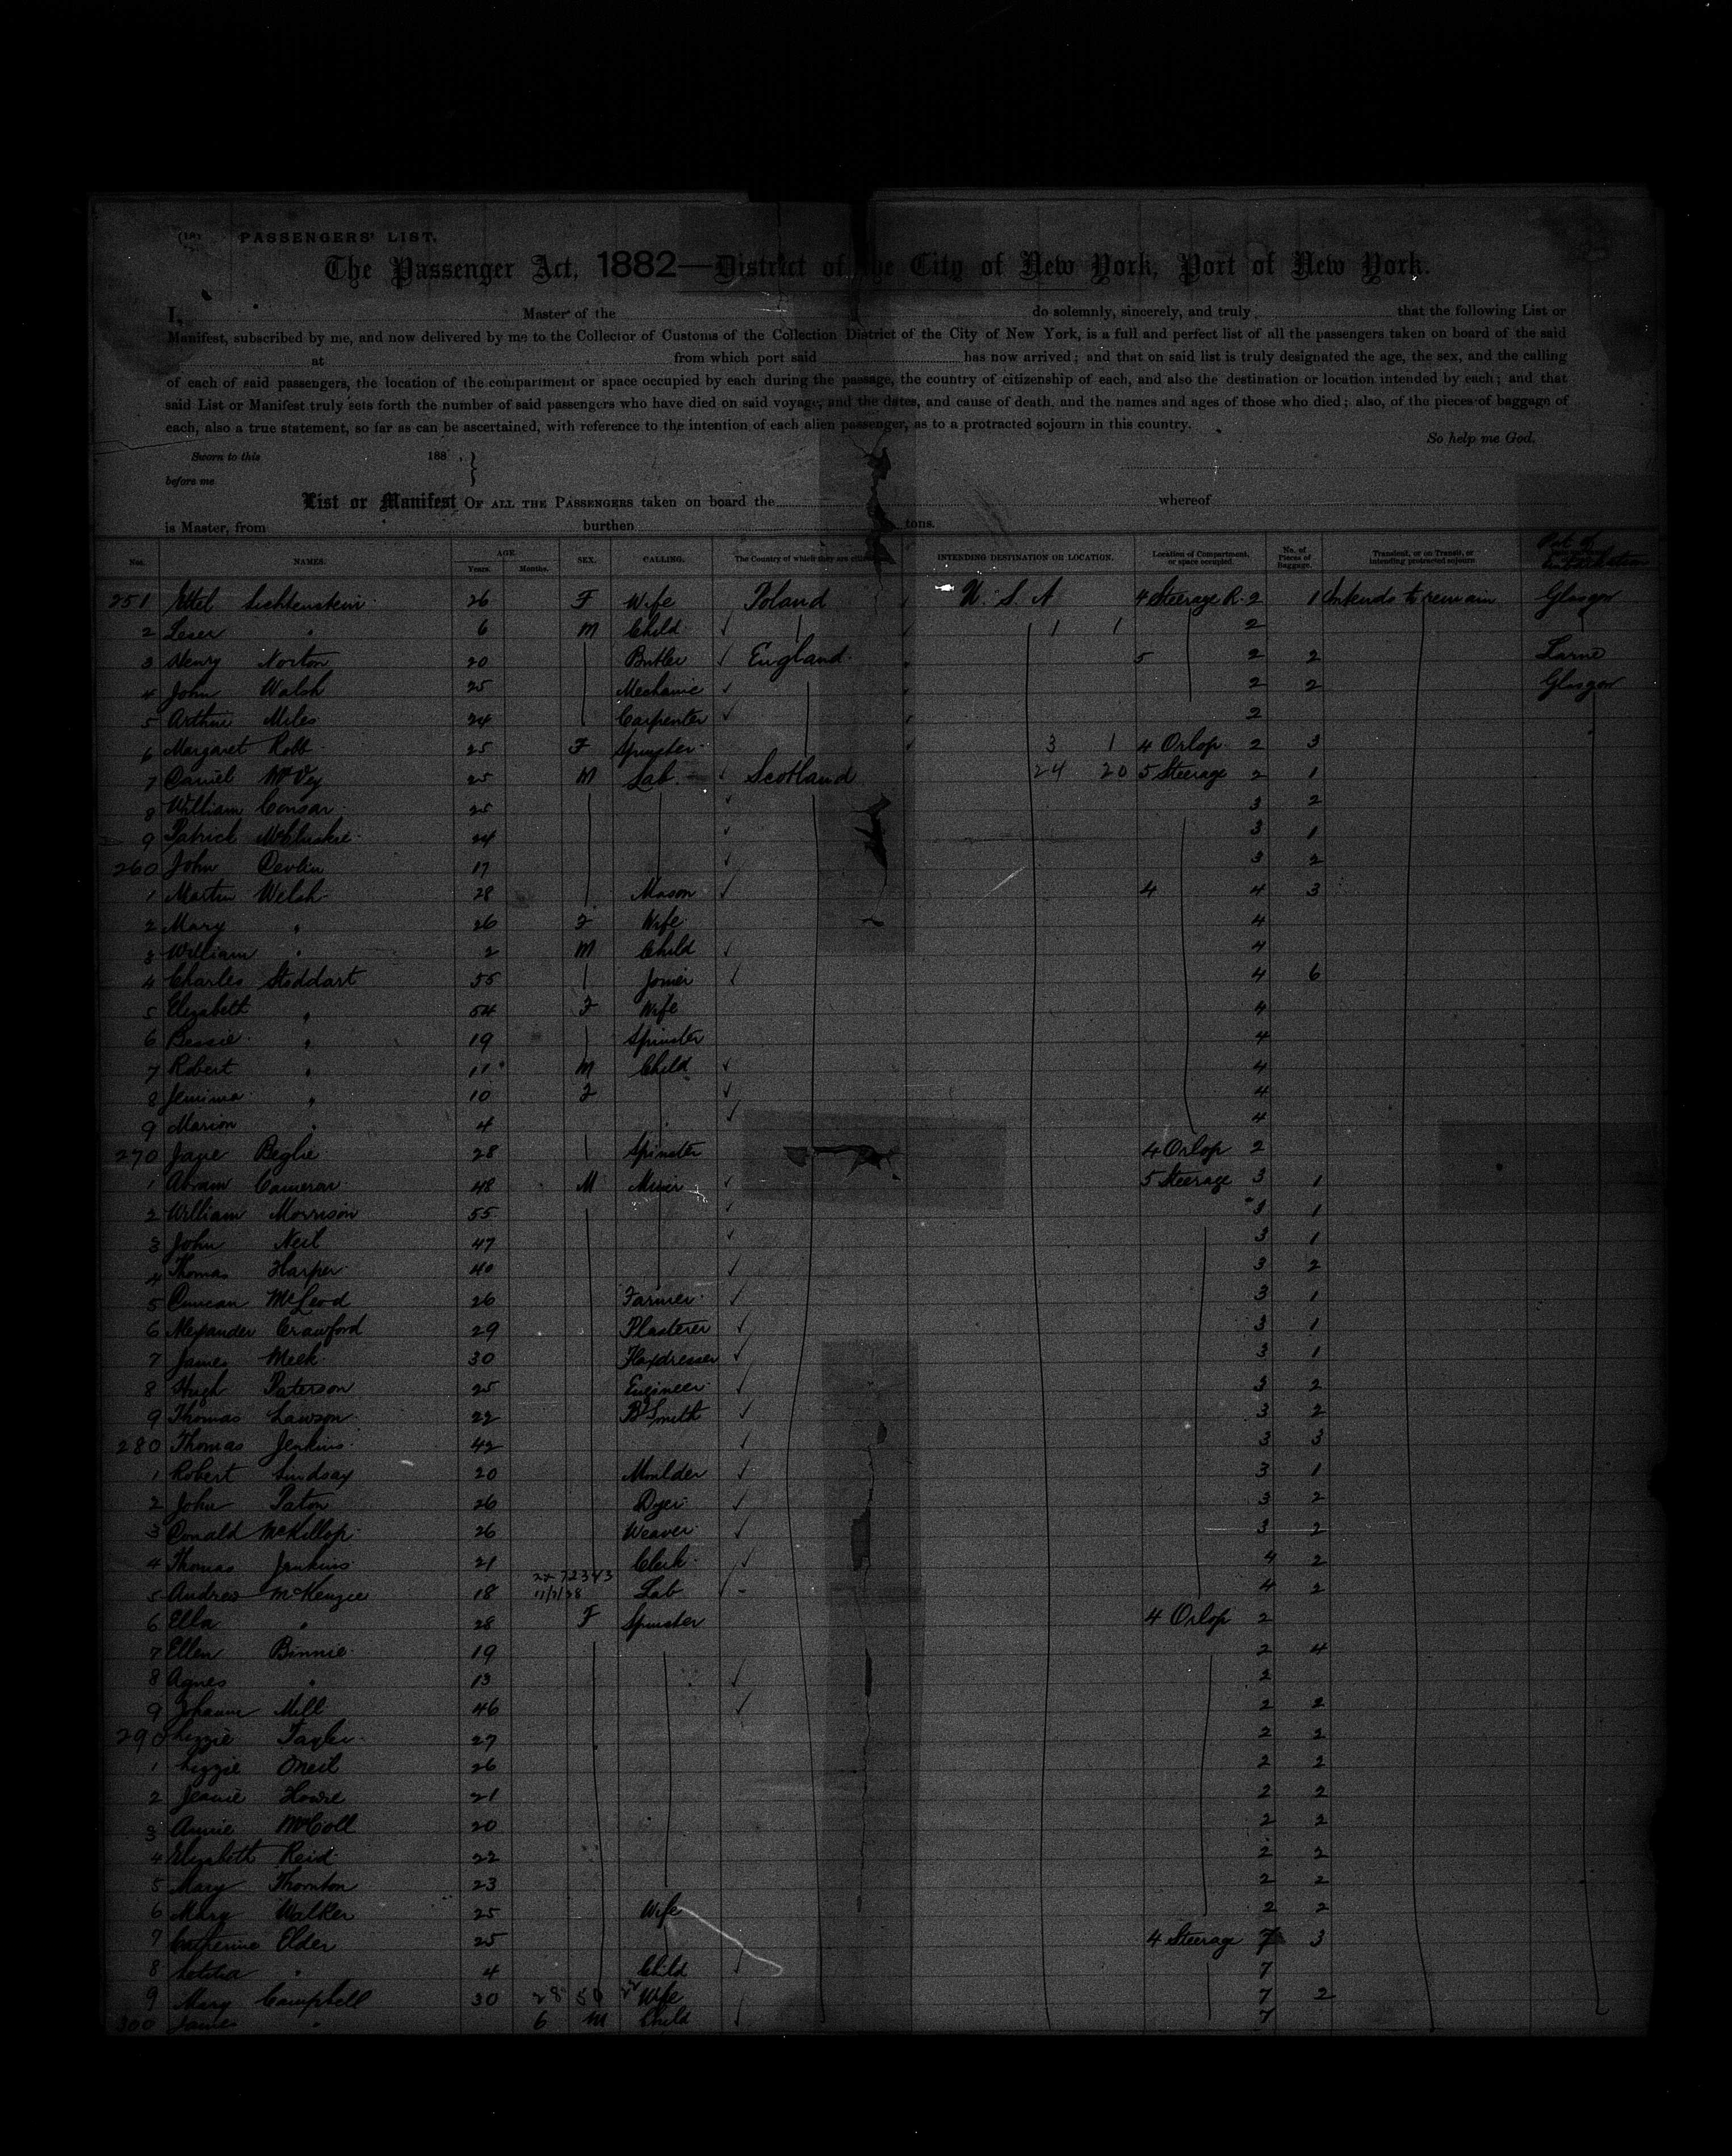 PASSENGERS' LIST.
The Passenger Act, 1882—District of the City of New York, Port of New York.
I, Master of the do solemnly, sincerely, and truly that the following List or
Manifest, subscribed by me, and now delivered by me to the Collector of Customs of the Collection District of the City of New York, is a full and perfect list of all the passengers taken on board of the said
at from which port said has now arrived; and that on said list is truly designated the age, the sex, and the calling
of each of said passengers, the location of the compartment or space occupied by each during the passage, the country of citizenship of each, and also the destination or location intended by each; and that
said List or Manifest truly sets forth the number of said passengers who have died on said voyage, and the dates, and cause of death, and the names and ages of those who died; also, of the pieces of baggage of
each, also a true statement, so far as can be ascertained, with reference to the intention of each alien passenger, as to a protracted sojourn in this country.
So help me God.
Sworn to this 188 . }
before me
List or Manifest OF ALL THE PASSENGERS taken on board the whereof
is Master, from burthen tons.
Nos. NAMES. AGE. Years. Months. SEX. CALLING. The Country of which they are INTENDING DESTINATION OR LOCATION. Location of Compartment, or space occupied No. of Pieces of Baggage. Transient, or on Transit, or intending protracted sojourn Port of Embarkation
251 Ettel Lichtenstein 26 F Wife Poland U.S.A 4 Steerage R. 2 1 Intends to remain Glasgow
2 Leser " 6 M Child ✓ 1 1 2
3 Henry Norton 20 Butler ✓ England 5 2 2 Larne
4 John Walsh 25 Mechanic ✓ 2 2 Glasgow
5 Arthur Miles 24 Carpenter ✓ 2
6 Margaret Robb 25 F Spinster 3 1 4 Orlop 2 3
7 Daniel McVey 25 M Lab ✓ Scotland 24 20 5 Steerage 2 1
8 William Consar 25 ✓ 3 2
9 Patrick McCluskie 24 ✓ 3 1
260 John Devlin 17 ✓ 3 2
1 Martin Welsh 28 Mason ✓ 4 4 3
2 Mary " 26 F Wife 4
3 William " 2 M Child ✓ 4
4 Charles Stoddart 55 Joiner ✓ 4 6
5 Elizabeth " 54 F Wife 4
6 Bessie " 19 Spinster 4
7 Robert " 11 M Child ✓ 4
8 Jemima " 10 F ✓ 4
9 Marion " 4 ✓ 4
270 Jane Beglie 28 Spinster 4 Orlop 2
1 Abram Cameron 48 M Miner ✓ 5 Steerage 3 1
2 William Morrison 55 ✓ 3 1
3 John Neil 47 ✓ 3 1
4 Thomas Harper 40 ✓ 3 2
5 Duncan McLeod 26 Farmer ✓ 3 1
6 Alexander Crawford 29 Plasterer ✓ 3 1
7 James Meek 30 Flaxdresser ✓ 3 1
8 Hugh Paterson 25 Engineer ✓ 3 2
9 Thomas Lawson 22 B Smith ✓ 3 2
280 Thomas Jenkins 42 ✓ 3 3
1 Robert Lindsay 20 Moulder ✓ 3 1
2 John Paton 26 Dyer ✓ 3 2
3 Donald McKillop 26 Weaver ✓ 3 2
4 Thomas Jenkins 21 Clerk ✓ 4 2
5 Andrew McKenzie 18 Lab ✓ 4 2
6 Ella " 28 F Spinster 4 Orlop 2
7 Ellen Binnie 19 2 4
8 Agnes " 13 ✓ 2
9 Mill 46 ✓ 2 2
290 Lizzie Taylor 27 2 2
1 Lizzie Oneil 26 2 2
2 Jeanie Howie 21 2 2
3 Annie McColl 20 2 2
4 Elizabeth Reid 22 2 2
5 Mary Thornton 23 2 2
6 Mary Walker 25 Wife 2 2
7 Catherine Elder 25 4 Steerage 7 3
8 Letitia " 4 Child ✓ 7
9 Mary Campbell 30 Wife 7 2
300 James " 6 M Child ✓ 7